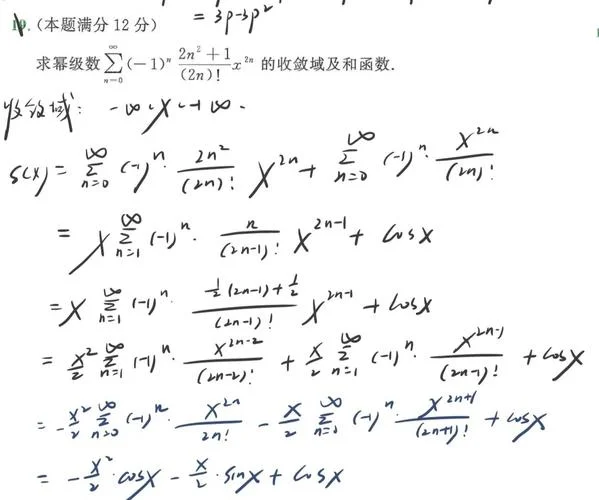 = 3p-3p²
19. (本题满分 12 分)
求幂级数 \sum_{n=0}^{\infty} (-1)^n \frac{2n^2+1}{(2n)!} x^{2n} 的收敛域及和函数.
收敛域: -∞<x<+∞.
S(x) = \sum_{n=0}^{\infty} (-1)^n · \frac{2n^2}{(2n)!} x^{2n} + \sum_{n=0}^{\infty} (-1)^n · \frac{x^{2n}}{(2n)!}
= x \sum_{n=1}^{\infty} (-1)^n · \frac{n}{(2n-1)!} x^{2n-1} + cosx
= x \sum_{n=1}^{\infty} (-1)^n · \frac{\frac{1}{2}(2n-1)+\frac{1}{2}}{(2n-1)!} x^{2n-1} + cosx
= \frac{x^2}{2} \sum_{n=1}^{\infty} (-1)^n · \frac{x^{2n-2}}{(2n-2)!} + \frac{x}{2} \sum_{n=1}^{\infty} (-1)^n · \frac{x^{2n-1}}{(2n-1)!} + cosx
= -\frac{x^2}{2} \sum_{n=0}^{\infty} (-1)^n · \frac{x^{2n}}{2n!} - \frac{x}{2} \sum_{n=0}^{\infty} (-1)^n · \frac{x^{2n+1}}{(2n+1)!} + cosx
= -\frac{x^2}{2} · cosx - \frac{x}{2} · sinx + cosx